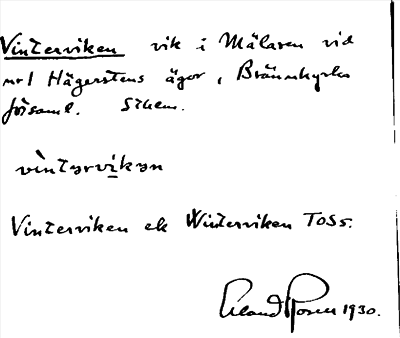 Vinterviken vik i Mälaren vid
nr1 Hägerstens ägor, Brännkyrka
församl. Sthm.
vìntərvikən
Vinterviken ek Winterviken TOS5.
Erland Rosen 1930.